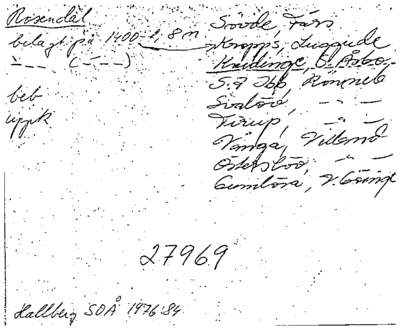 Rosendal
belagt på 1400-t, 8 m
beb
uppk
Sövde, Färs
Kropps, Luggude
Kvidinge, Ö. Åsbo
S:t Ibb, Rönneb
Svalöv, — " —
Tirup, — " —
Vånga, Villand
Österslöv, — " —
Gumlösa, V. Göinge
27969
Hallberg SOÅ 1976:84